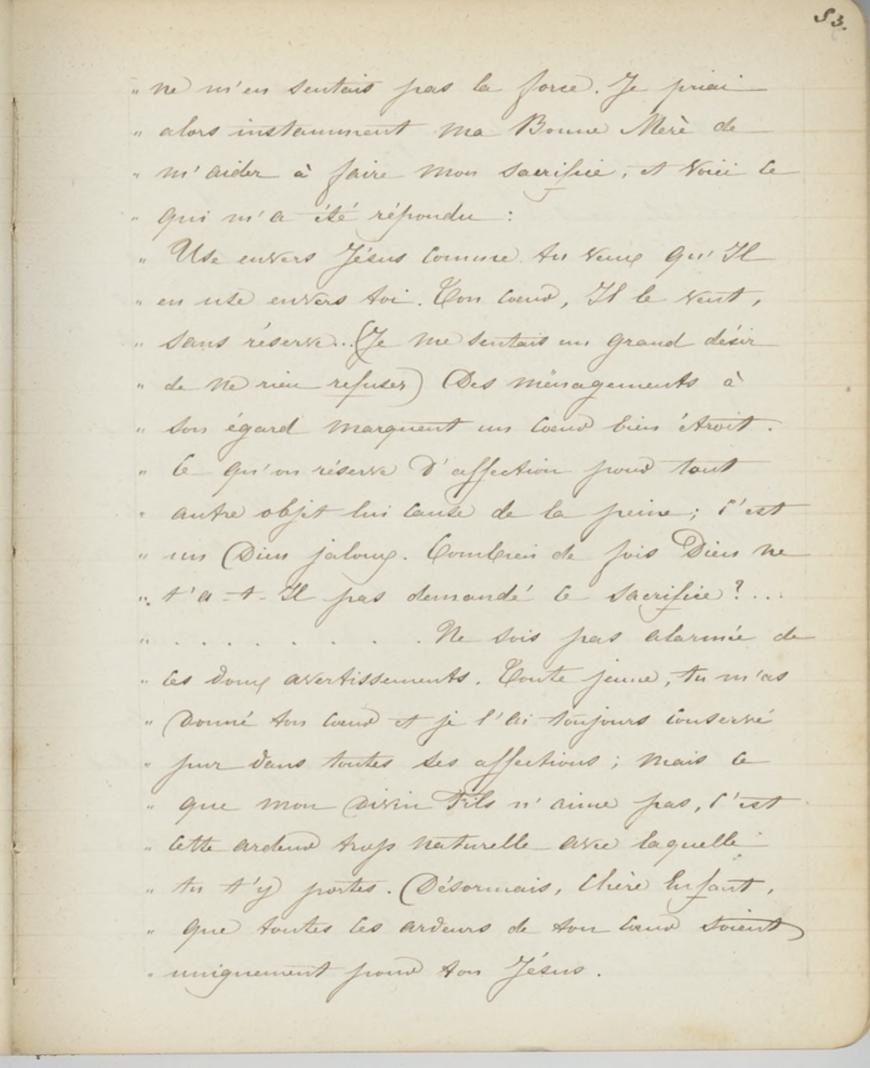 83.
" ne m'en sentais pas la force. Je priai
" alors instamment ma Bonne Mère de
" m'aider à faire mon sacrifice, et voici ce
" qui m'a été répondu :
" Use envers Jésus comme tu veux qu'Il
" en use envers toi. Ton cœur, Il le veut,
" sans réserve... (Je me sentais un grand désir
" de ne rien refuser) Des ménagements à
" son égard marquent un cœur bien étroit.
" Ce qu'on réserve d'affection pour tout
" autre objet lui cause de la peine ; c'est
" un Dieu jaloux. Combien de fois Dieu ne
" t'a-t-Il pas demandé ce sacrifice ? ...
" . . . . . . . . Ne sois pas alarmée de
" ces doux avertissements. Toute jeune, tu m'as
" donné ton cœur et je l'ai toujours conservé
" pur dans toutes ses affections ; mais ce
" que mon Divin Fils n'aime pas, c'est
" cette ardeur trop naturelle avec laquelle
" tu t'y portes. Désormais, chère Enfant,
" que toutes les ardeurs de ton cœur soient
" uniquement pour ton Jésus.